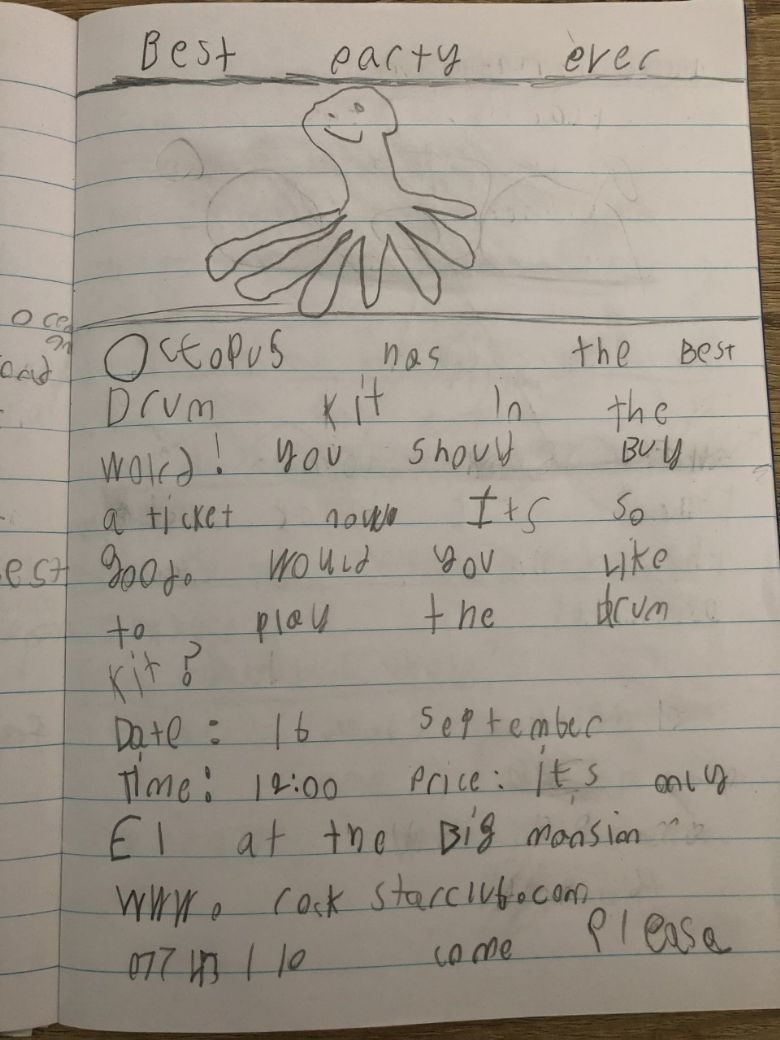 Best party ever
Octopus has the Best
Drum kit in the
world! you shoud Buy
a ticket now Its so
good. would you Like
to play the drum
kit?
Date: 16 September
Time: 12:00 Price: it,s only
£1 at the Big mansion
www. rock starclub.com
come Please
est